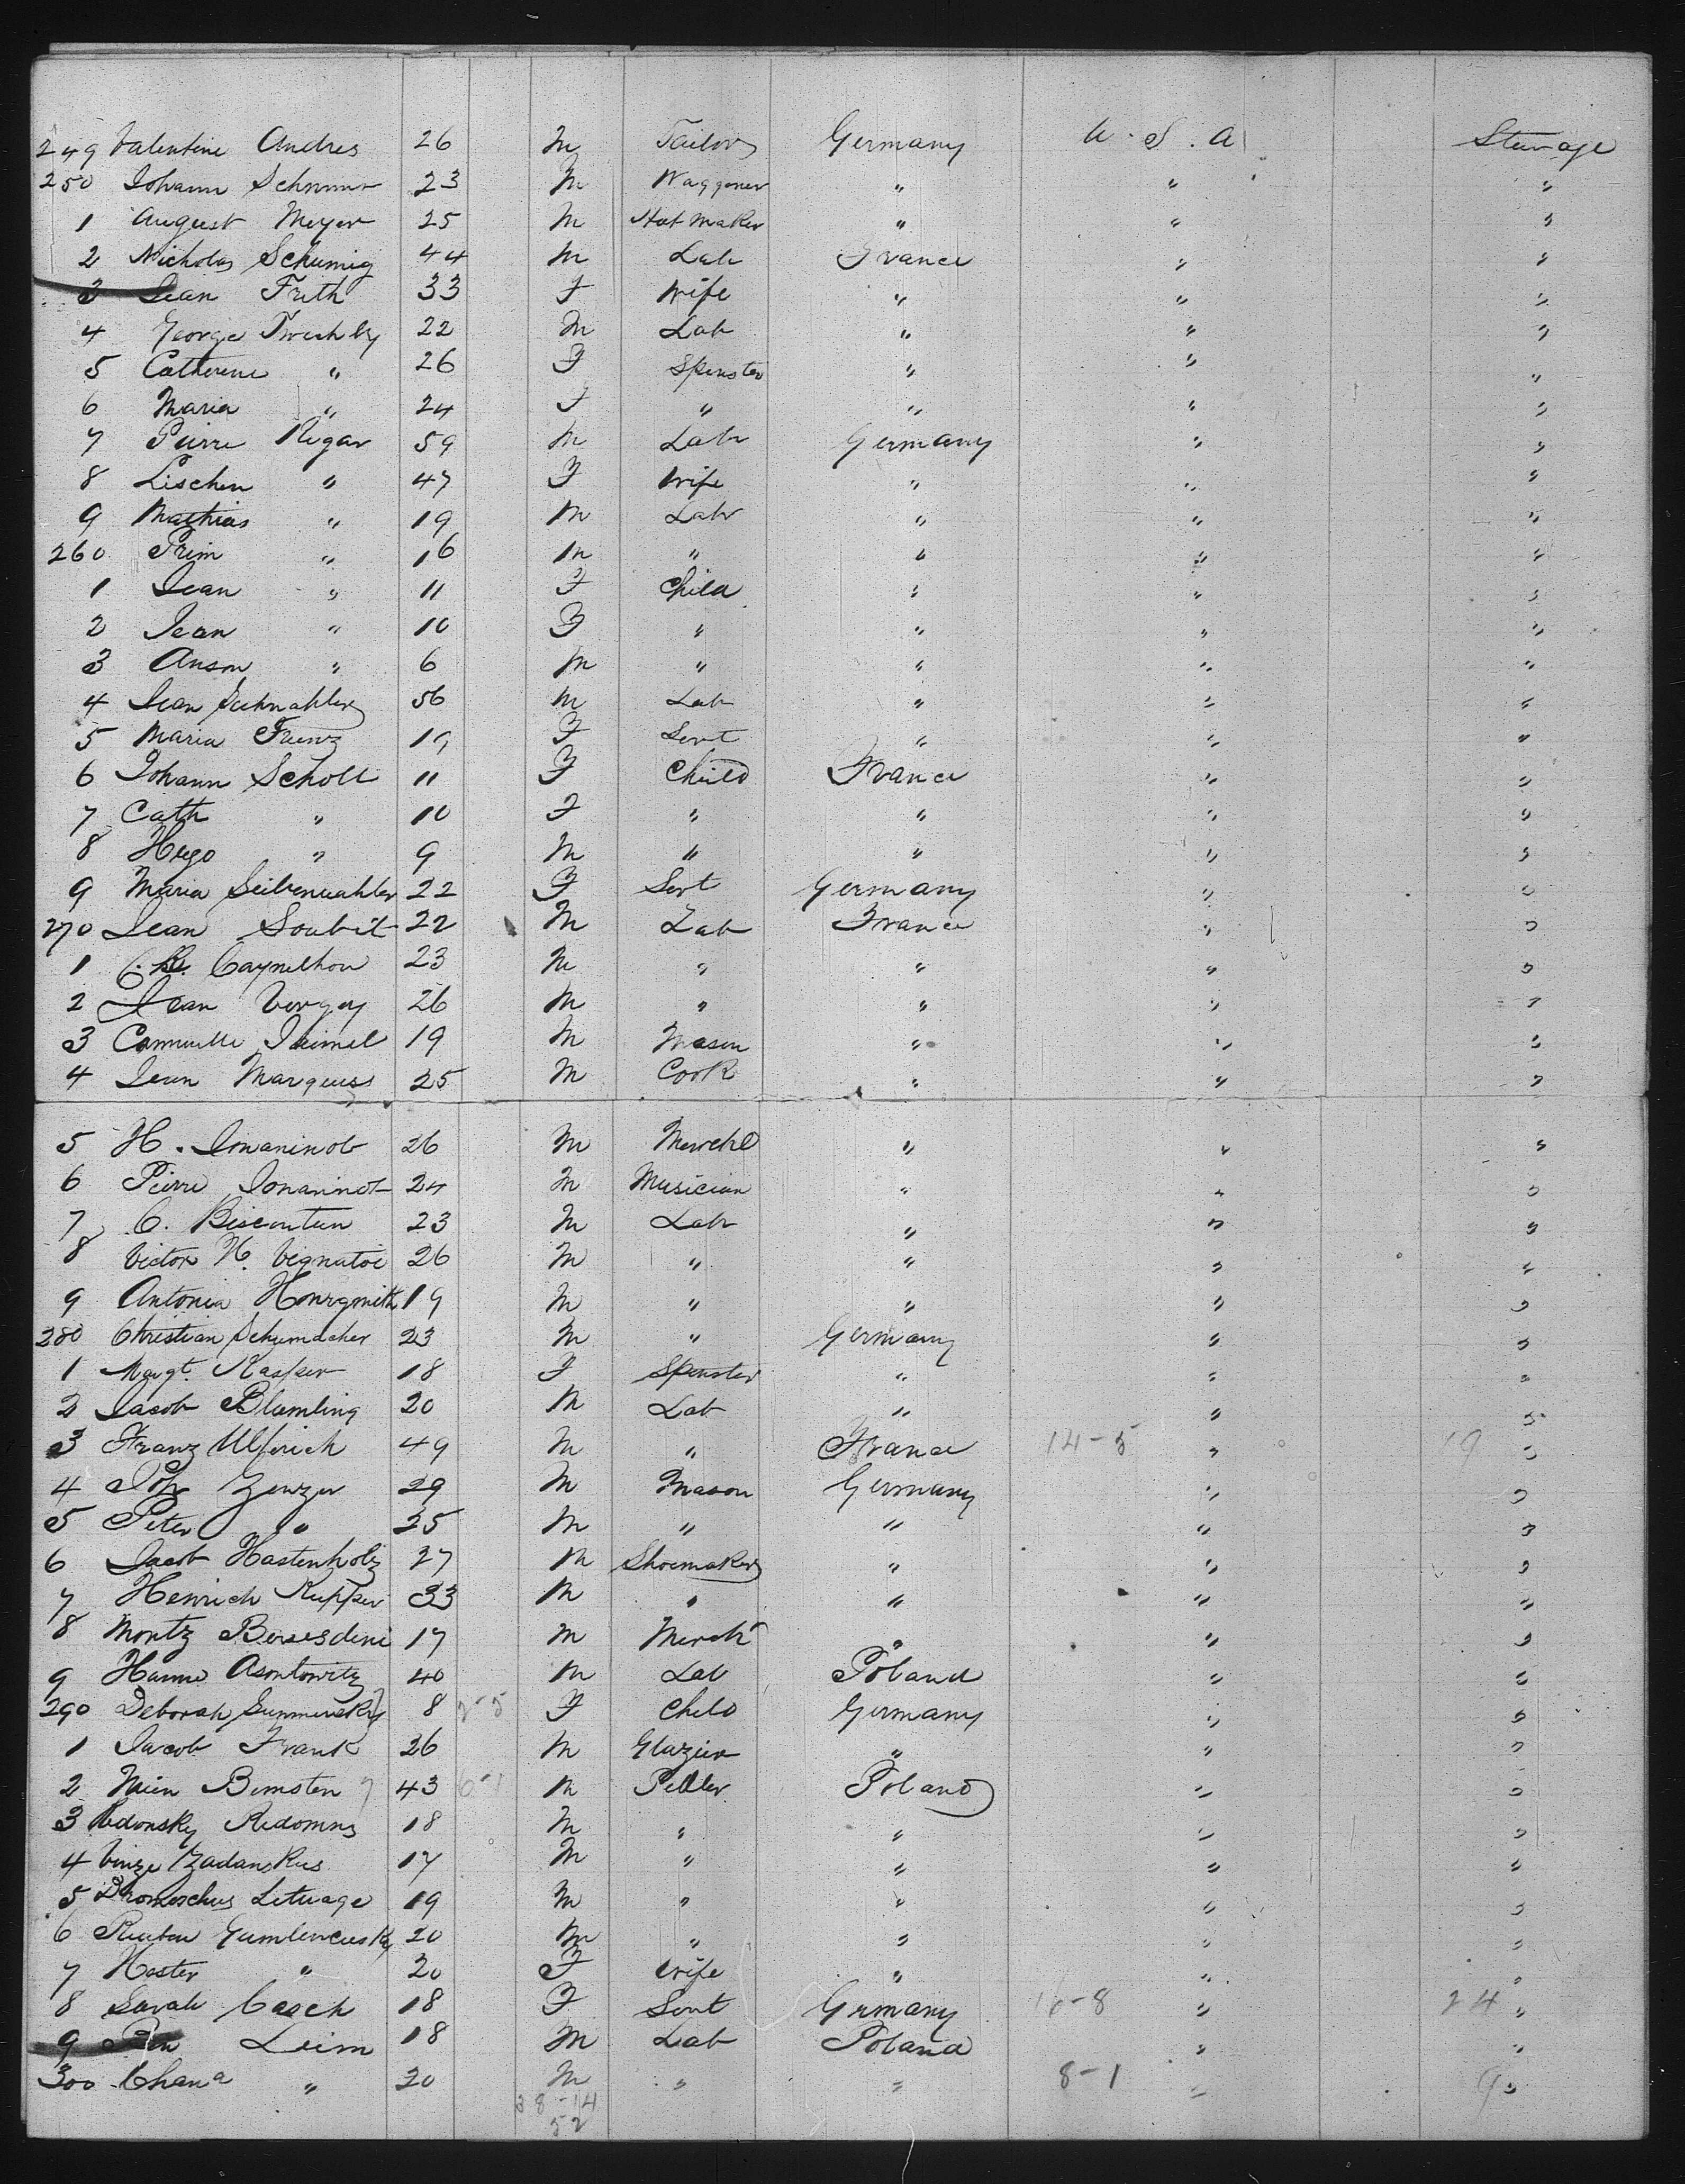 249 Valentine Andres 26 M Tailor Germany U.S.A Steerage
250 Johann 23 M Waggoner " " "
1 August Meyer 25 M Hat Maker " " "
2 Nicholas Schumig 44 M Lab France " "
3 Jean Frith 33 F Wife " " "
4 George 22 M Lab " " "
5 Catherine " 26 F Spinster " " "
6 Maria " 24 F " " " "
7 Pierre Rigar 59 M Labr Germany " "
8 Lischen " 47 F Wife " " "
9 Mathias " 19 M Labr " " "
260 Prim " 16 M " " " "
1 Jean " 11 F Child " " "
2 Jean " 10 F " " " "
3 Anson " 6 M " " " "
4 Jean 56 M Lab " " "
5 Maria 19 F Servt " " "
6 Johann Scholl 11 F Child France " "
7 Cath " 10 F " " " "
8 Hugo " 9 M " " " "
9 Maria 22 F Servt Germany " "
270 Jean Soubit 22 M Lab France " "
1 23 M " " " "
2 Jean Vergey 26 M " " " "
3 19 M Mason " " "
4 Jean Marquess 25 M Cook " " "
5 H. 26 M Mercht " " "
6 Pierre 24 M Musician " " "
7 C. 23 M Labr " " "
8 Victor H. 26 M " " " "
9 Antonia 19 M " " " "
280 Christian Schumacher 23 M " Germany " "
1 Margt. Kasper 18 F Spinster " " "
2 Jacob Blumling 20 M Lab " " "
3 Franz Ulferich 49 M " France 14-5 " 19 "
4 Joh 29 M Mason Germany " "
5 Peter " 25 M " " " "
6 Jacob Hastenholz 27 M Shoemaker " " "
7 Henrich Kupper 33 M " " " "
8 Moritz 17 M Mercht " " "
9 Hanne Asontowitz 40 M Lab Poland " "
290 Deborah 8 2-5 F Child Germany " "
1 Jacob Frank 26 M Glazier " " "
2 43 6-1 M Pedler Poland " "
3 18 M " " " "
4 17 M " " " "
5 19 M " " " "
6 20 M " " " "
7 Hester " 20 F Wife " " "
8 Sarah Casch 18 F Servt Germany 16-8 " 24 "
9 Leim 18 M Lab Poland " "
300 Chana " 20 M " " 8-1 " 9 "
38-14
52